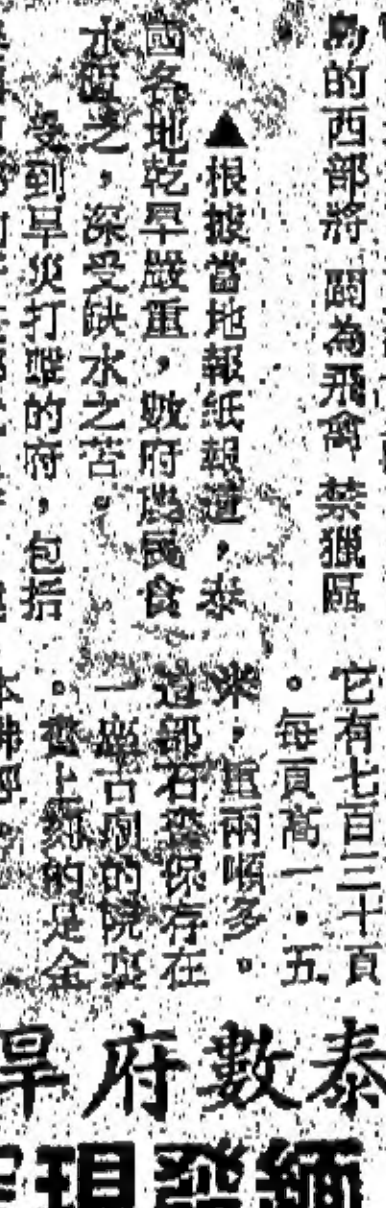 島的西部將闢為飛禽禁獵區
。
▲根據當地報紙報道,泰
國各地乾旱嚴重,數府農民食
水之,深受缺水之苦。
受到旱災打擊的府,包括
它有七百三十頁
。每頁高一・五
米,重兩噸多。
這部石書保存在
一座古廟的院裏
。書上刻的是全
本佛經。
泰數府旱
緬發現